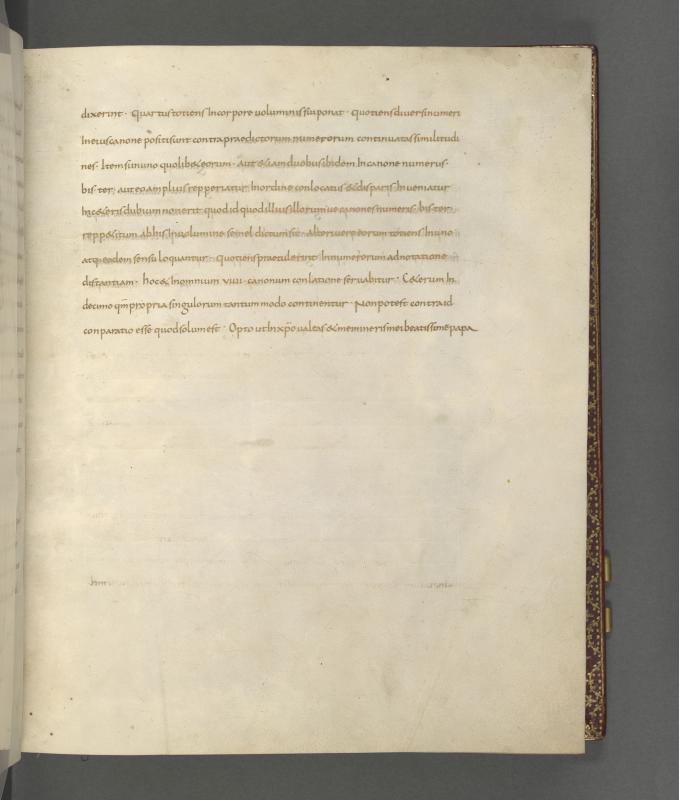 dixerint · Quartus totiens In corpore voluminis sui ponat · Quotiens diversi numeri
In eius canone positi sunt contra praedictorum numerorum continuatas similitudi
nes · Item si in uno quolib& eorum · aut &iam duobus ibidem In canone numerus ·
bis · ter · aut eo amplius repperiatur In ordine conlocatus & disparis Inveniatur
hic & eris dubium non erit quod id quod illius illorum ve canones numeris · bis · ter ·
reppositum ab his In volumine semel dictum sit · alter vero eorum totiens In uno
atq; eodem sensu loquantur · Quotiens praetulerint In numerorum adnotatione
distantiam · hoc & In omnium viiii · canonum conlatione servabitur · C&erum In
decimo qm̄ propria singulorum tantum modo continentur · Non potest contra id
conparatio esse quod solum est · Opto ut In xp̄o valeas & memineris mei beatissime papa